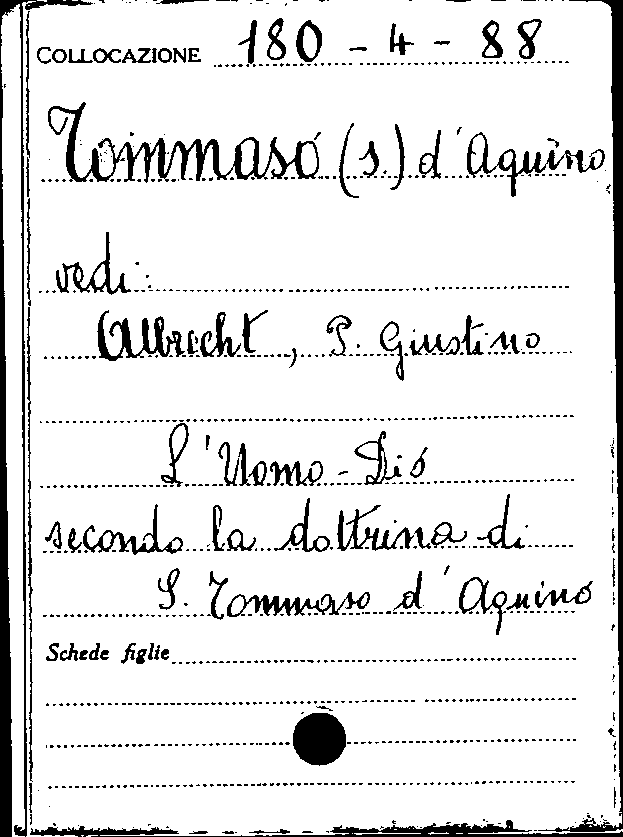 COLLOCAZIONE 180 - 4 - 88
Tommaso (s.) d'Aquino
vedi:
Albrecht, P. Giustino
L'Uomo-Dio
secondo la dottrina di
S. Tommaso d'Aquino
Schede figlie